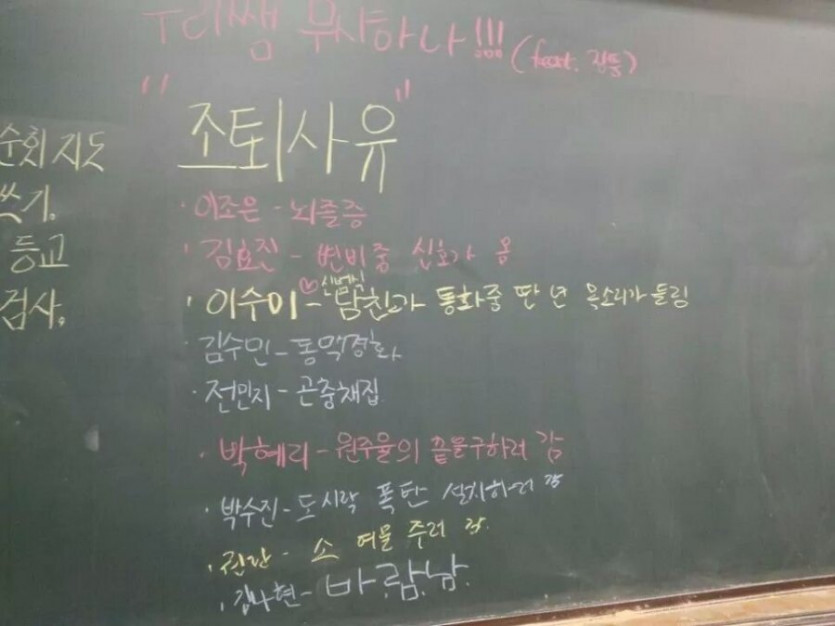 우리쌤 무사하나!!! (feat. 정통)
"조퇴사유"
순회지도
쓰기.
등교
검사.
· 이조은 - 뇌졸증
· 김효진 - 변비중 신호가 옴
· 이수미♡신범식 - 남친과 통화중 딴 년 목소리가 들림
· 김수민 - 동맥경화
· 전민지 - 곤충채집
· 박혜리 - 원주율의 끝을구하러 감
· 박수진 - 도시락 폭탄 설치하러 감
· 권란 - 소 여물 주러 감.
· 김나현 - 바.람.남.